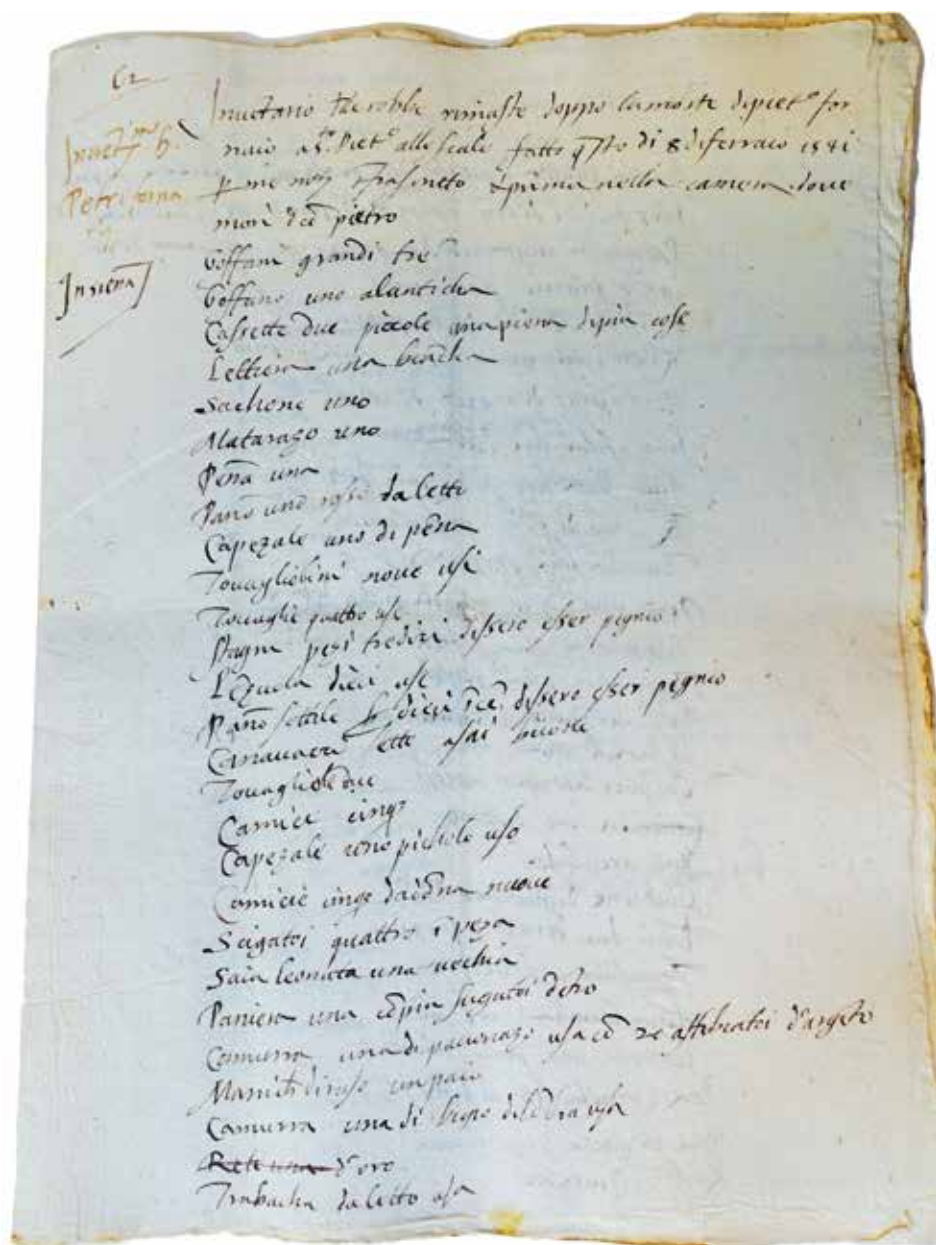 62
Inuetario dle robbe rimaste doppo la morte di piet.º for
naio a S.º Piet.º alle scale fatto q̄sto di 8 di ferraio 1541
p me nõ frasineto & prima nella camera doue
mori dcõ pietro
Inuet.º h.
Petri forna
rii
In siena
Goffani grandi tre
Goffano uno alanticha
Cassette due piccole una piena di piu cose
Lettiera una biãcha
Sachone uno
Matarazo uno
Pẽna una
Panõ uno da letto
Capezale uno di pẽna
Touagliolini noue usi
Touaglie quattro use
Pagni pezi tredici dissero esser pegnio
Lẽzuola dieci use
Pañno sottile dissero esser pegnio
Canauacci sette asai
Touagliole due
Camici cinq3
Capezale uno picholo uso
Camicie cinqe da dõna nuoue
Scigatoi quattro ĩ peza
Saia leonata una uechia
Paniera una cõ piu sugatoi dẽtro
Camurra una di pauonazo usa cõ 22 affibiatoi d'argẽto
Manichi di raso un paio
Camurra una di bigio usa
Rete una d'oro
Trabacha da letto usa